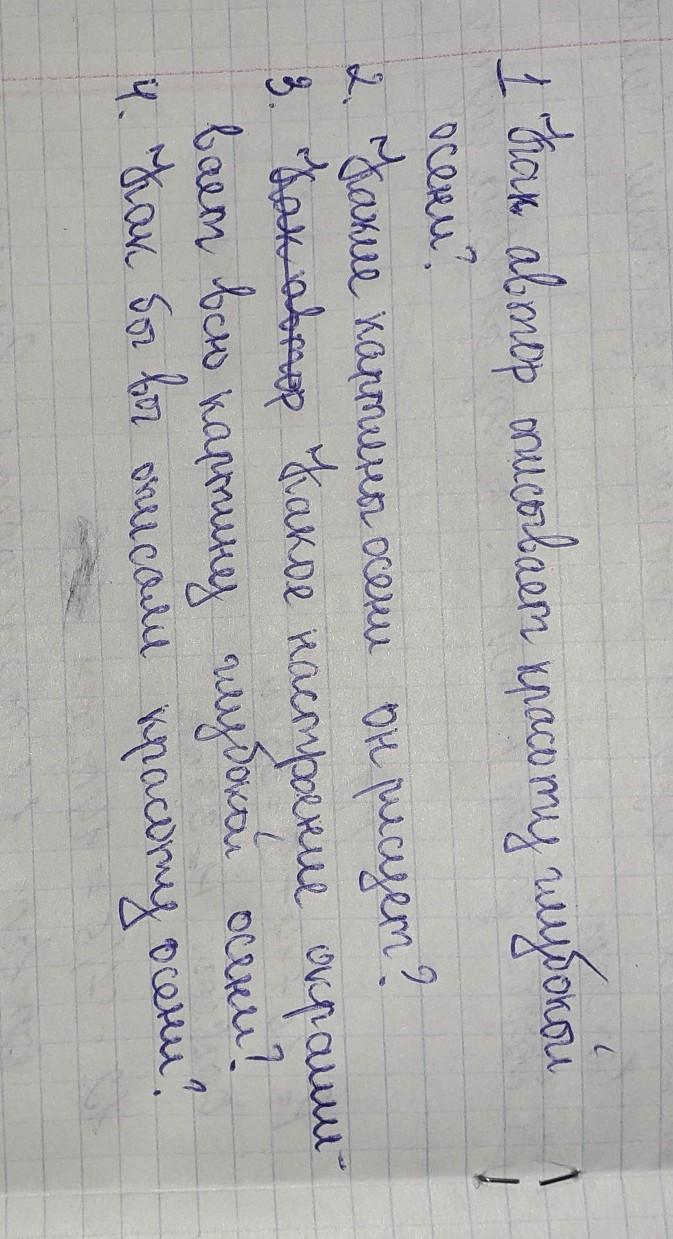 1 Как автор описывает красоту глубокой
осени?
2. Какие картины осени он рисует?
3. Как автор Какое настроение окраши-
вает всю картину глубокой осени?
4. Как бы вы описали красоту осени?